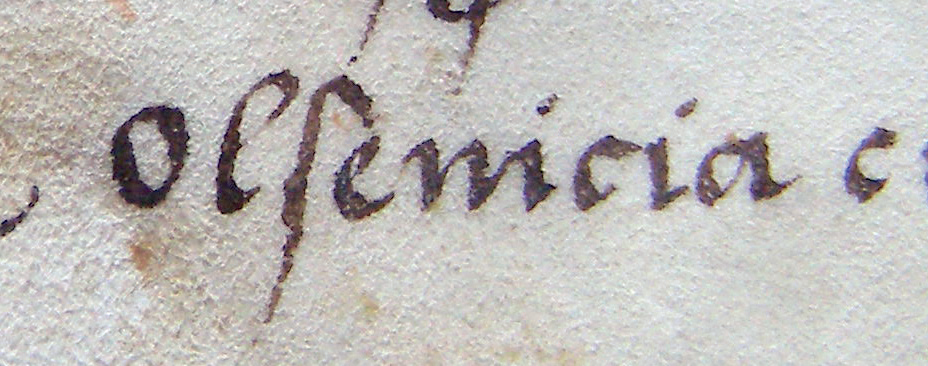 olſenicia